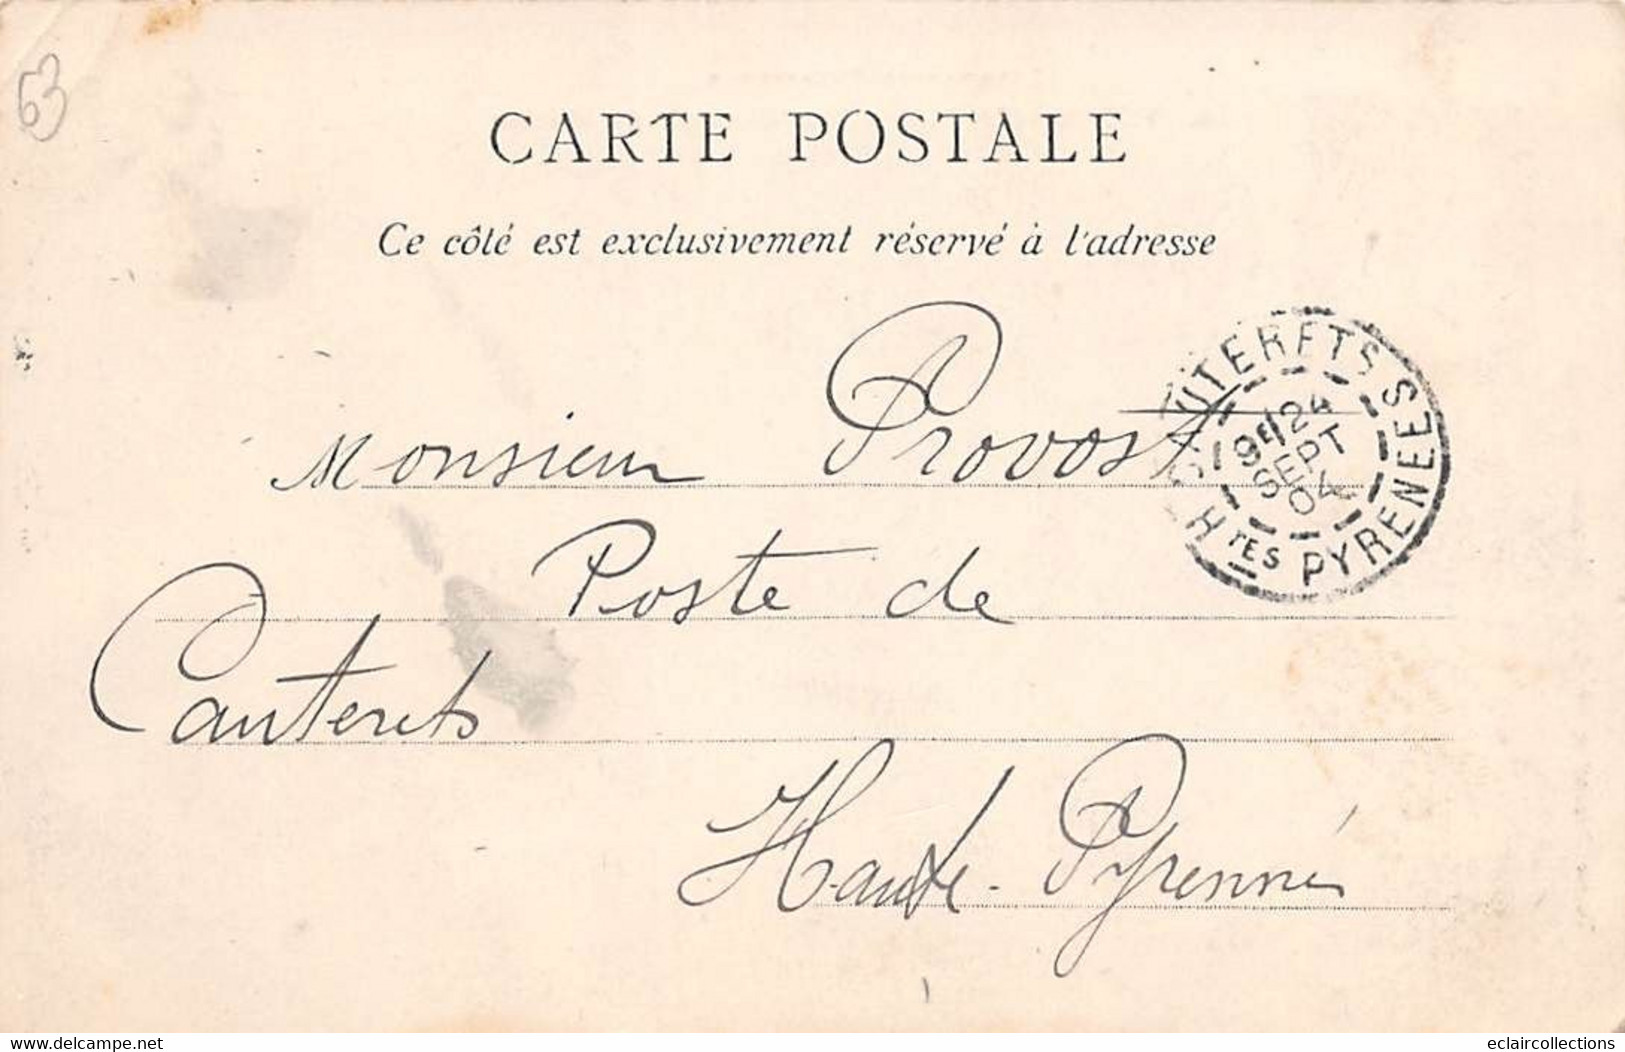 63
CARTE POSTALE
Ce côté est exclusivement réservé à l'adresse
Monsieur Provost
CAUTERETS
9E 24
SEPT
04
HTES PYRENEES
Poste de
Cauterets
Haute-Pyrennés
www.delcampe.net
eclaircollections